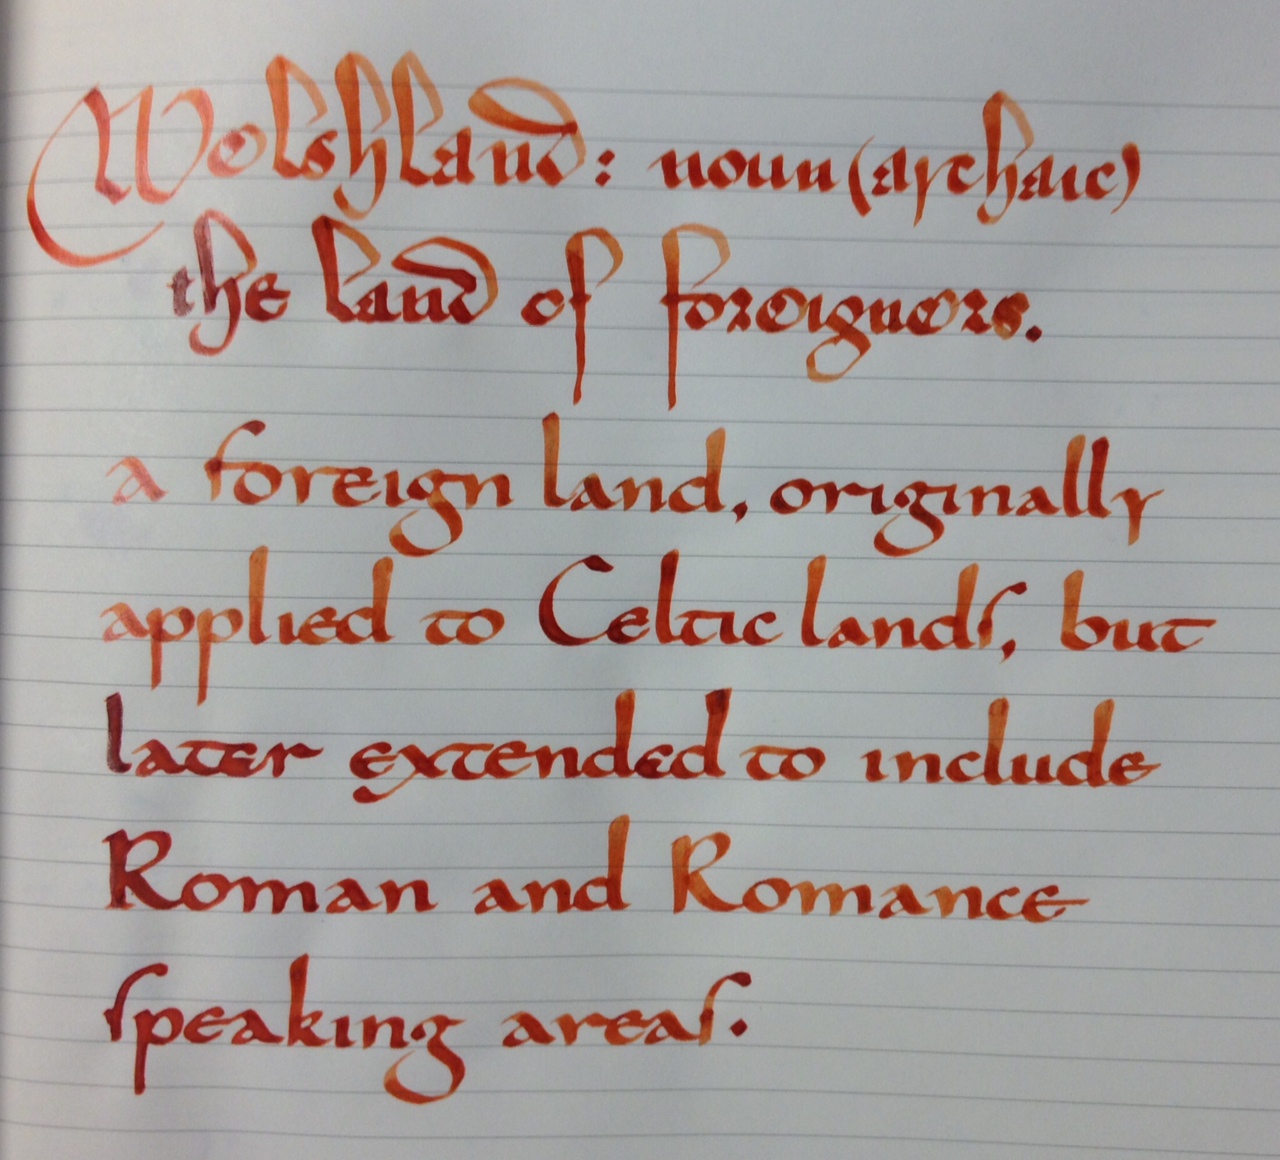 Welshland: noun (archaic)
the land of foreigners.
a foreign land, originally
applied to Celtic lands, but
later extended to include
Roman and Romance
speaking areas.